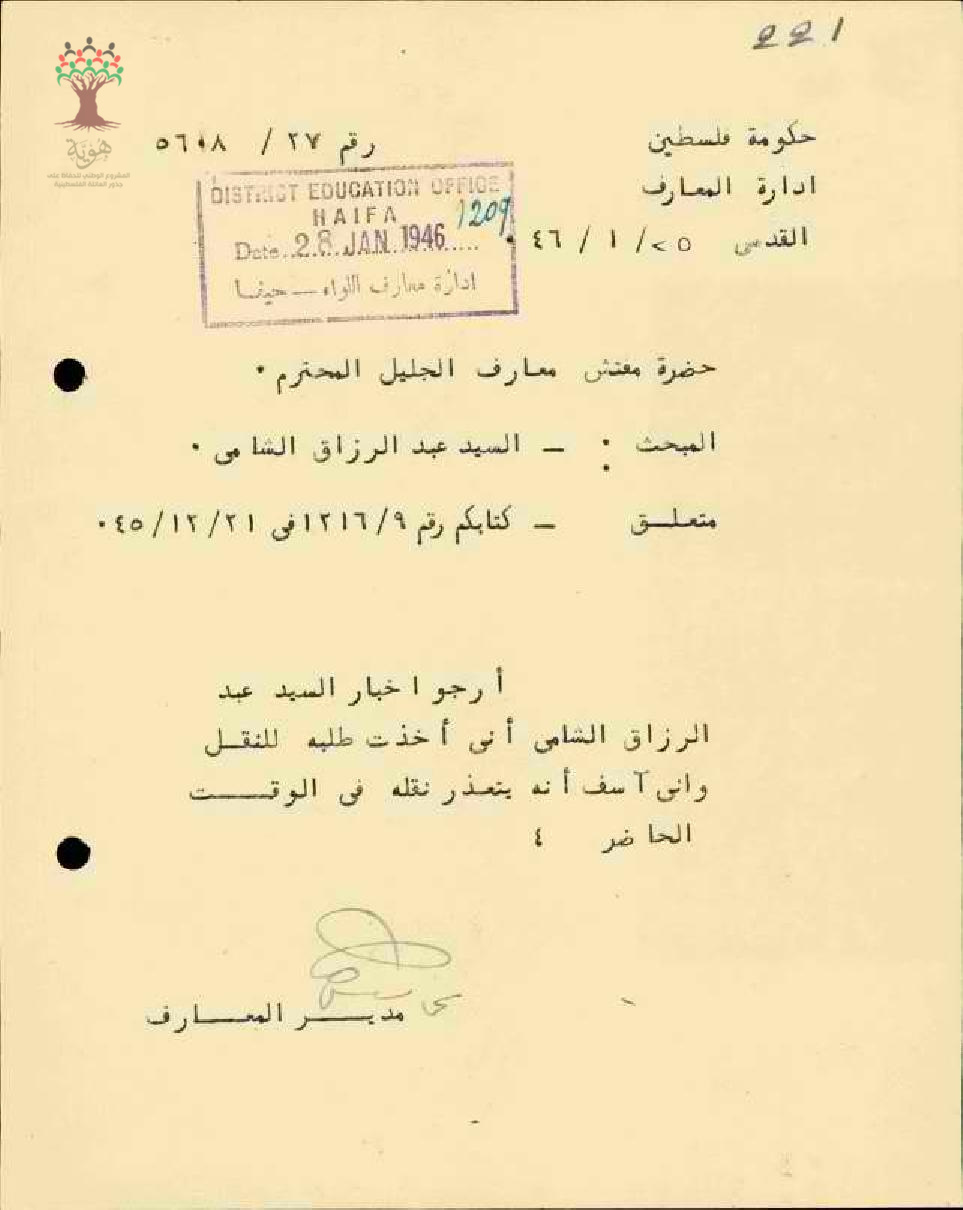 221
هوية
المشروع الوطني للحفاظ على
جذور العائلة الفلسطينية
حكومة فلسطين
رقم ٢٧ / ٥٦٠٨
ادارة المعارف
القدس ٢٥ / ١ / ٤٦ ٠
DISTRICT EDUCATION OFFICE
HAIFA
1209
Date 28 JAN 1946
ادارة معارف اللواء — حيفا
حضرة مفتش معارف الجليل المحترم ٠
المبحث : — السيد عبد الرزاق الشامى ٠
متعلـق — كتابكم رقم ١٢١٦/٩ فى ٤٥/١٢/٢١ ٠
أرجو اخبار السيد عبد
الرزاق الشامى أنى أخذت طلبه للنقـل
وانى آسف أنه يتعذر نقله فى الوقـــت
الحاضر ٤
مديـــر المعـــارف